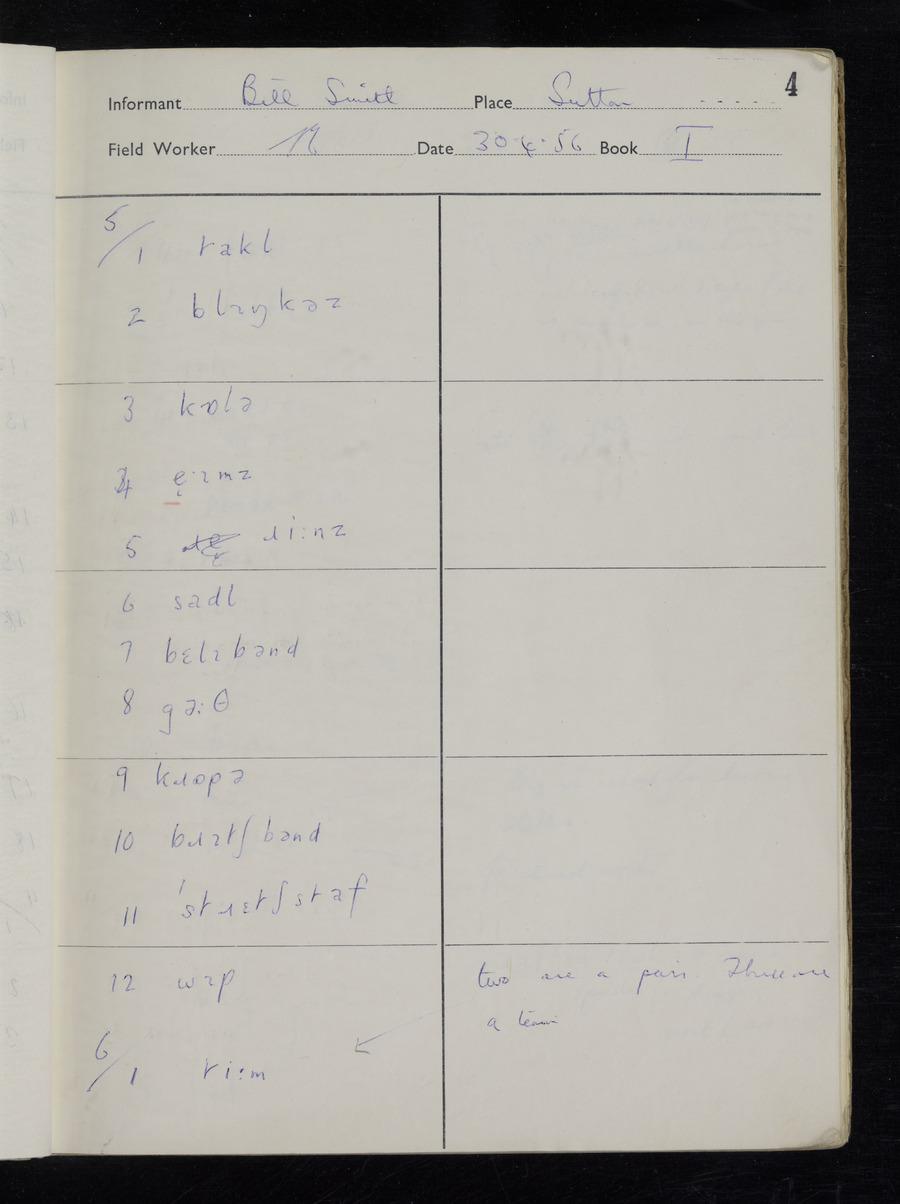 4
Informant Bill Smith Place Sutton
Field Worker Date 30.4.56 Book I
5/1 takl
2 blɪŋkəz
3 kɒlə
4 ẹ·ɪmz
5 ɹi:nz
6 sadl
7 bɛlɪband
8 gə:θ
9 kɹɒpə
10 bɹɪtʃband
11 'stɹɛtʃstaf
12 wɪp
two are a pair. Three are
a team
6/1 ti:m